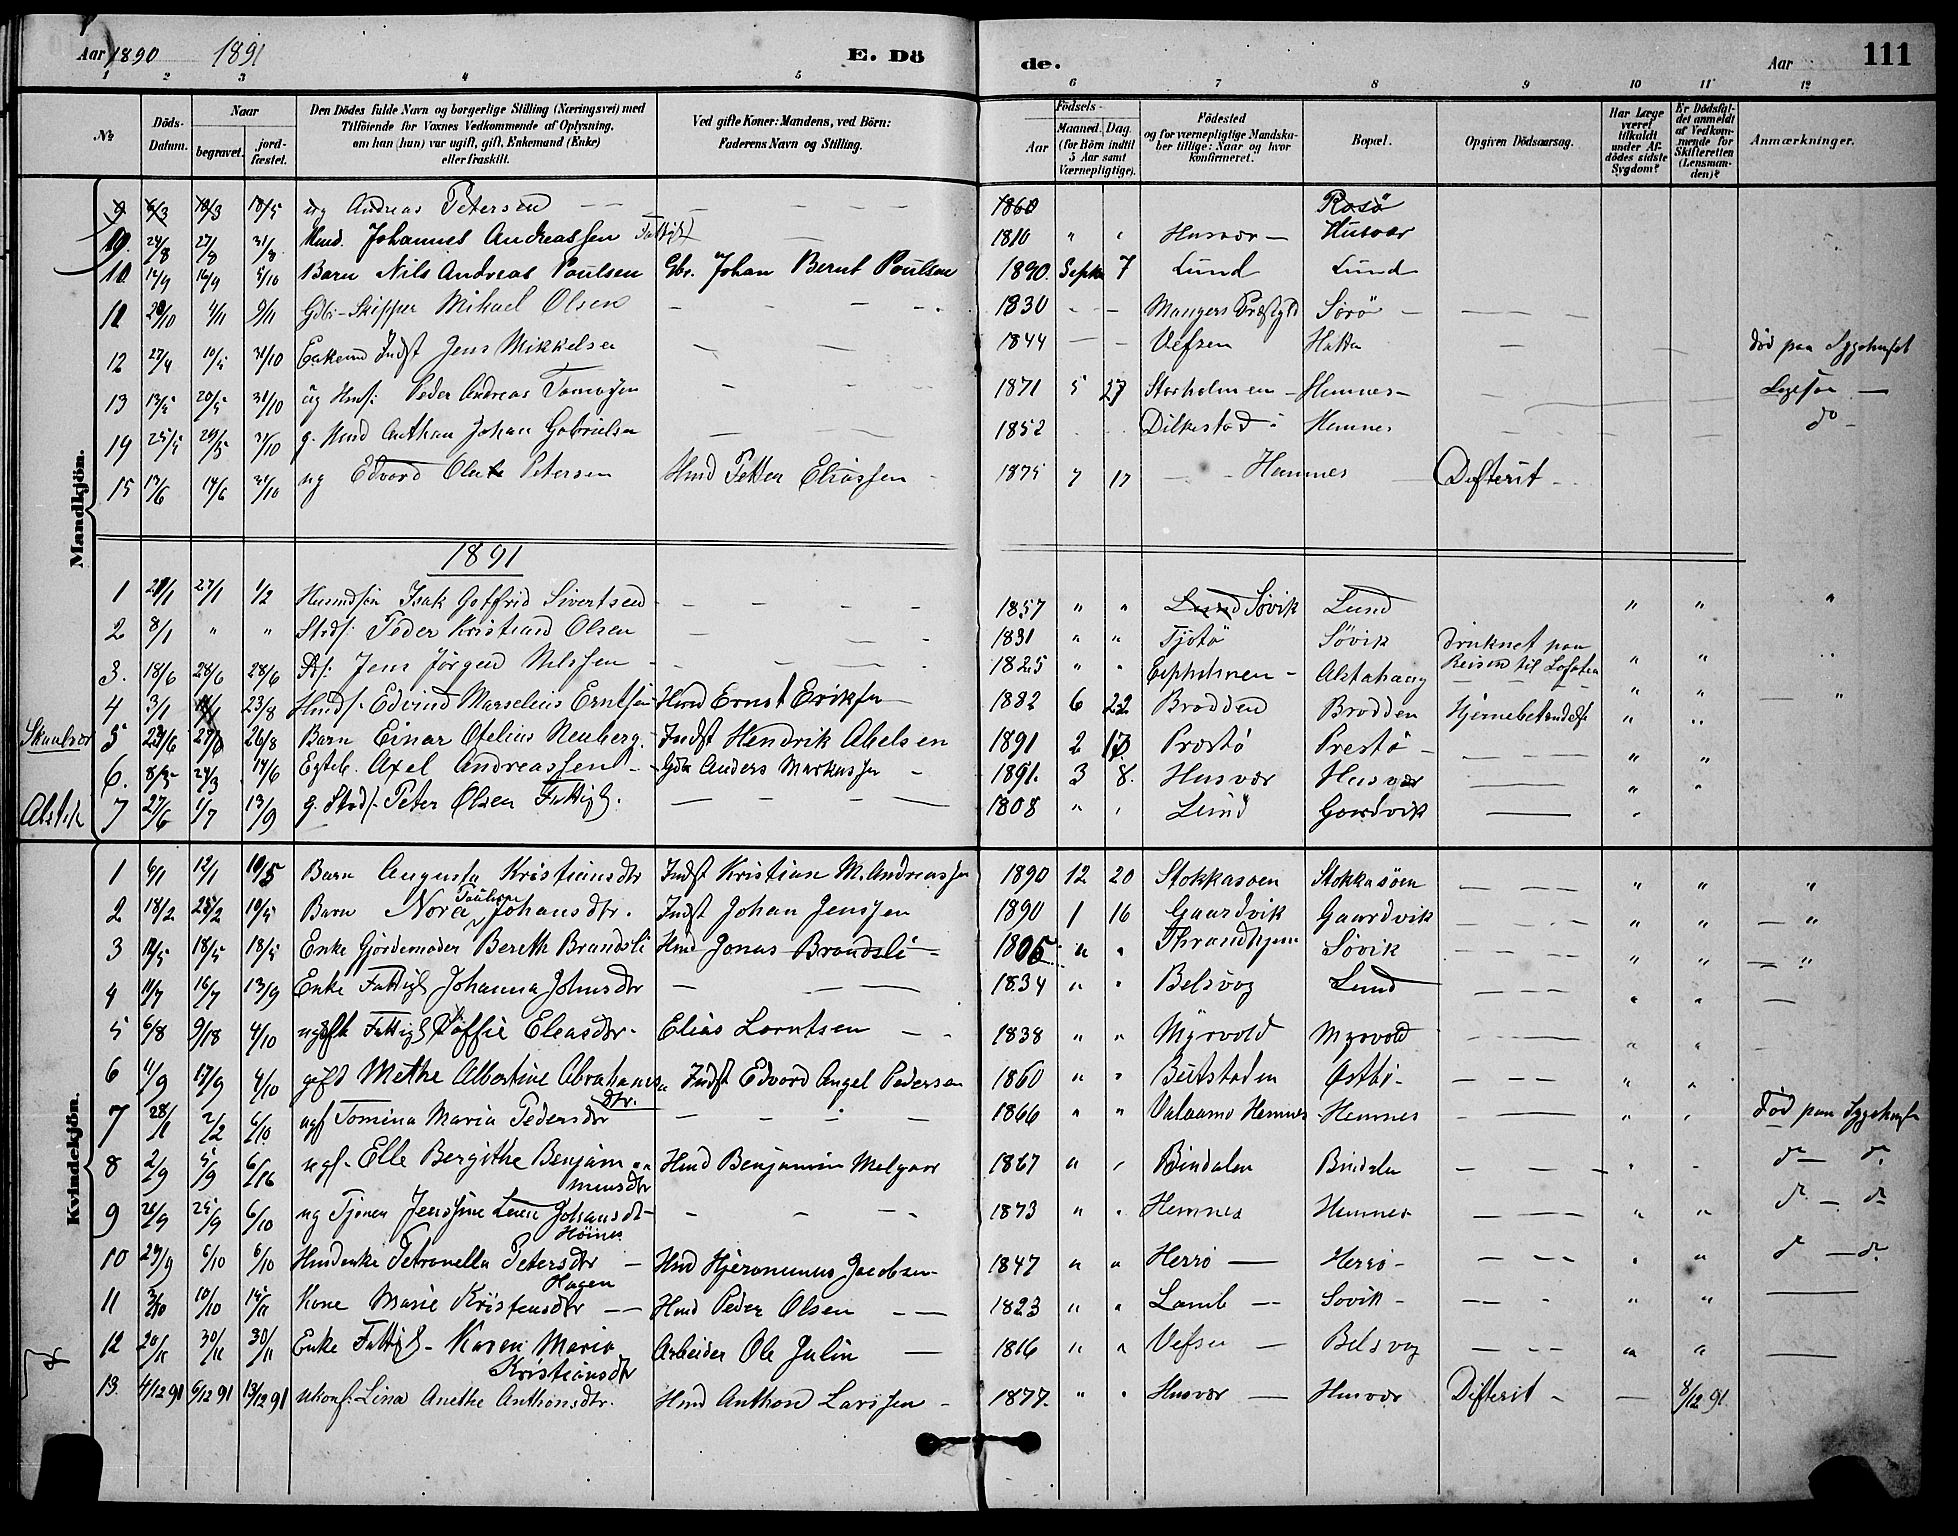 Aar 1890 1891 E. Dö de. Aar 111
1 2 3 4 5 6 7 8 9 10 11 12
№ Döds-Datum. Naar begravet. jordfæstet. Den Dödes fulde Navn og borgerlige Stilling (Næringsvei) med Tilföiende for Voxnes Vedkommende af Oplysning, om han (hun) var ugift, gift, Enkemand (Enke) eller fraskilt. Ved gifte Koner: Mandens, ved Börn: Faderens Navn og Stilling. Födsels- Aar Maaned. Dag. (for Börn indtil 5 Aar samt Værnepligtige). Födested og for værnepligtige Mandskaber tillige: Naar og hvor konfirmeret. Bopæl. Opgiven Dödsaarsag. Har Læge været tilkaldt under Afdödes sidste Sygdom? Er Dödsfaldet anmeldt af Vedkommende for Skifteretten (Lensmanden)? Anmærkninger.
Mandkjön.
9 6/3 10/3 18/5 ug Andreas Petersen — — 1860 Rosö
10. 24/8 27/8 31/8 Hmd. Johannes Andreassen 1810 " " Husvær — Husvær
10 12/9 16/9 5/10 Barn Nils Andreas Poulsen Gbr. Johan Bernt Poulsen 1890. Septbr 7 Lund Lund
11 29/10 4/11 9/11 Gbr-Skipper Mikael Olsen 1830 - - Mangers Præstgjld Sörö —
12 27/4 10/5 31/10 Enkemd Indst Jens Mikkelsen 1844 — — Vefsen Hatten död paa Sygehuset
13 13/5 20/5 31/10 ug Hmds: Peder Andreas Tomassen 1871 5 27 Storholmen - Hemnes -
19 25/5 29/5 31/10 g. Hmd Anthon Johan Gabrielsen 1852 Dilkestad Hemnes do
15 13/6 14/6 31/10 ug Edvard Olai Petersen Hmd Petter Eliassen 1875 7 17 — Hemnes Difterit -
1891
1 20/1 27/1 1/2 Husmdsøn Isak Gotfrid Sivertsen 1857 " " Lund Søvik Lund " " "
2 8/1 " " Strds: Peder Kristian Olsen 1831 " " Tjotø Søvik Druknet paa
3. 18/6 28/6 28/6 Jens Jørgen Nilssen 1825 " " Alstahaug Reisen til Lofoten " "
4 3/1 11/1 23/8 Hmds. Edvind Marselius Erntsen Hmd Ernst Eriksen 1882 6 22 Brodden Brodden Hjernebetændelse " "
5 24/6 27/6 26/8 Barn Einar Otelius Neuberg. Indst Hendrik Abelsen 1891 2 13 Prestø Prestö " "
6. 8/5 24/3 14/6 Egteb. Axel Andreassen Gbr Anders Markussen 1891. 3 8. Husvær Husvær " "
Alstah 7 27/6 1/7 13/9 g. Strds. Peter Olsen Fattigl. 1808 " " Lund Gaardvik "
Kvindekjön.
1 6/1 12/1 10/5 Barn Augusta Kristiansdtr Indst Kristian M. Andreassen 1890 12 20 Stokkasöen Stokkasöen " " "
2 18/2 25/2 10/5 Barn Nora Pauline Johansdtr. Indst Johan Jenssen 1890 1 16 Gaardvik Gaardvik " " "
3 11/5 18/5 18/5 Enke Gjordemoder Bereth Brandsli Hmd Jonas Brandsli 1805 " " Thrandhjem Søvik " " "
4 11/7 16/7 13/9 Enke Fattigl Johanna Johnsdtr 1834 " " Belsvog Lund " "
5 6/8 9/18 4/10 ugift Fattigl Søffie Eleasdtr Elias Lorntsen 1838 " " Myrvold Myrvold " "
6 11/9 17/9 4/10 gift Methe Albertine Abrahamsdtr. Indst Edvard Angel Pedersen 1860 " " Beitstaden Østbö " "
7 28/1 2/2 6/10 ugf Tomina Maria Pedersdtr 1866 " " Valaamo Hemnes Hemnes " " död paa Sygehuset
8 2/9 5/9 6/16 ugf. Elle Bergithe Benjaminsdtr Hmd Benjamin Melgaar 1867 " " Bindalen Bindalen " - do — do
9 20/9 25/9 6/10 ug Tjener Jenssine Lene Johansdtr Höines 1873 " " Hemnes Hemnes " " do — do
10 29/9 6/10 6/10 Husdenke Petronella Petersdtr Hmd Hjeronimus Jacobsen 1847 " " Herrö — Herrö " " do — do
11 3/10 10/10 15/11 Kone Marie Kristensdtr Hagen Hmd Peder Olsen 1823 " " Lamb — Sovik " " —
12 20/11 30/11 30/11 Enke Fattigl - Karen Maria Kristiansdtr Arbeider Ole Julin 1816 " " Vefsen Belsvog " " —
13. 4/12 91 6/12 91 13/12 91 ukonf. Lina Anethe Anthonsdtr. Hmd Anthon Larssen 1877. " " Husvær Husvær Difterit — 8/12 91.